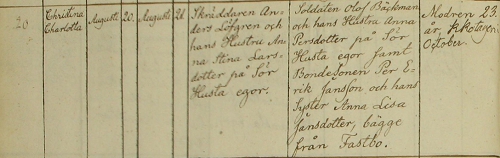 20.
Christina
Charlotta
August 20.
August 21.
Skräddaren An-
ders Löfgren och
hans Hustru An-
na Stina Lars-
dotter på Sör
Husta egor.
Soldaten Olof Bäckman
och hans Hustru Anna
Persdotter på Sör
Husta egor samt
BondeSonen Per E-
rik Jansson och hans
Syster Anna Lisa
Jansdotter, bägge
från Fastbo.
Modren 23
år, Kyrkotagen
October.